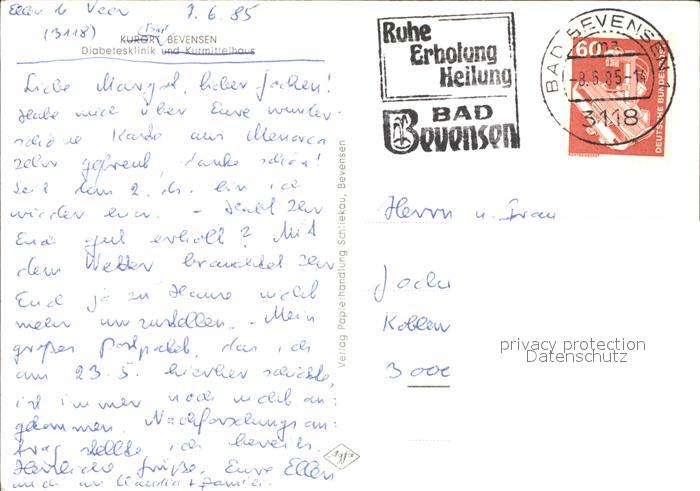 Ellen de Veer 7.6.85
(3118) Bad
KURORT BEVENSEN
Diabetesklinik und Kurmittelhaus
Liebe Margot, lieber Jochen!
Habe mich über Eure wunder-
schöne Karte aus Menorca
sehr gefreut, danke schön!
Seit dem 2. ds. bin ich
wieder hier. - Habt Ihr
Euch gut erholt? Mit
dem Wetter brauchtet Ihr
Euch ja zu Hause nicht
mehr umzustellen. - Mein
großes Postpaket, das ich
am 23.5. hierher schickte,
ist immer noch nicht an-
gekommen. Nachforschungsan-
trag stellte ich bereits.
Herzliche Grüße, Eure Ellen
auch an Claudia + Familie.
Verlag Papierhandlung Schliekau, Bevensen
Agfa
Ruhe
Erholung
Heilung
BAD
Bevensen
BAD BEVENSEN
-8.6.85-14
3118
60
DEUTSCHE BUNDESPOST
Herrn u. Frau
Joche
Koblen
3000
privacy protection
Datenschutz